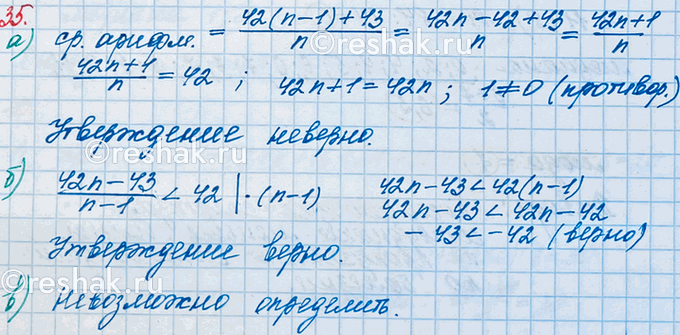 35.
а) ср. арифм. = \frac{42(n-1)+43}{n} = \frac{42n-42+43}{n} = \frac{42n+1}{n}
\frac{42n+1}{n} = 42 ; 42n+1=42n; 1≠0 (противор.)
Утверждение неверно.
б) \frac{42n-43}{n-1} < 42 | · (n-1) 42n-43<42(n-1)
42n-43<42n-42
-43<-42 (верно)
Утверждение верно.
в) Невозможно определить.
©reshak.ru